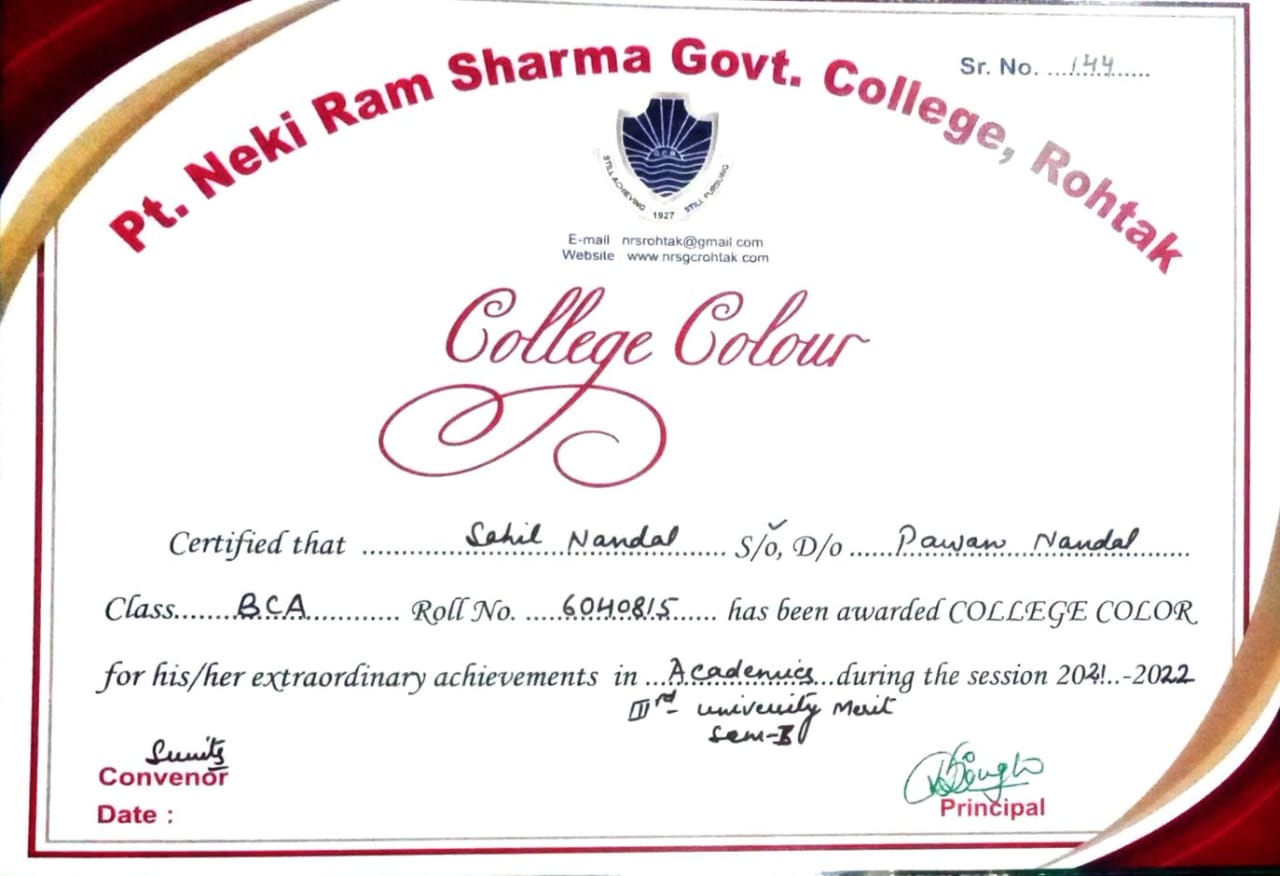 Pt. Neki Ram Sharma Govt. College, Rohtak
Sr. No. ...144......
STILL ACHIEVING STILL PURSUING
1927
E-mail : nrsrohtak@gmail.com
Website : www.nrsgcrohtak.com
College Colour
Certified that .......... Sahil Nandal ...... S/o, D/o ...... Pawan Nandal ......
Class...... BCA ............ Roll No. ..... 6040815 ...... has been awarded COLLEGE COLOR
for his/her extraordinary achievements in ... Academics ... during the session 2021..-2022
IIIrd University Merit
Convenor
Principal
Date :